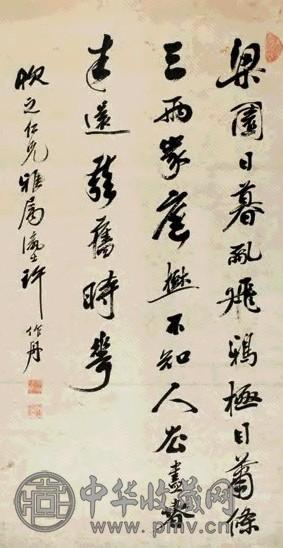 梁園日暮亂飛鴉極目蕭條
三兩家庭樹不知人去盡春
來還發舊時花
之仁兄雅屬 許作丹
中华收藏网
www.pmv.cn